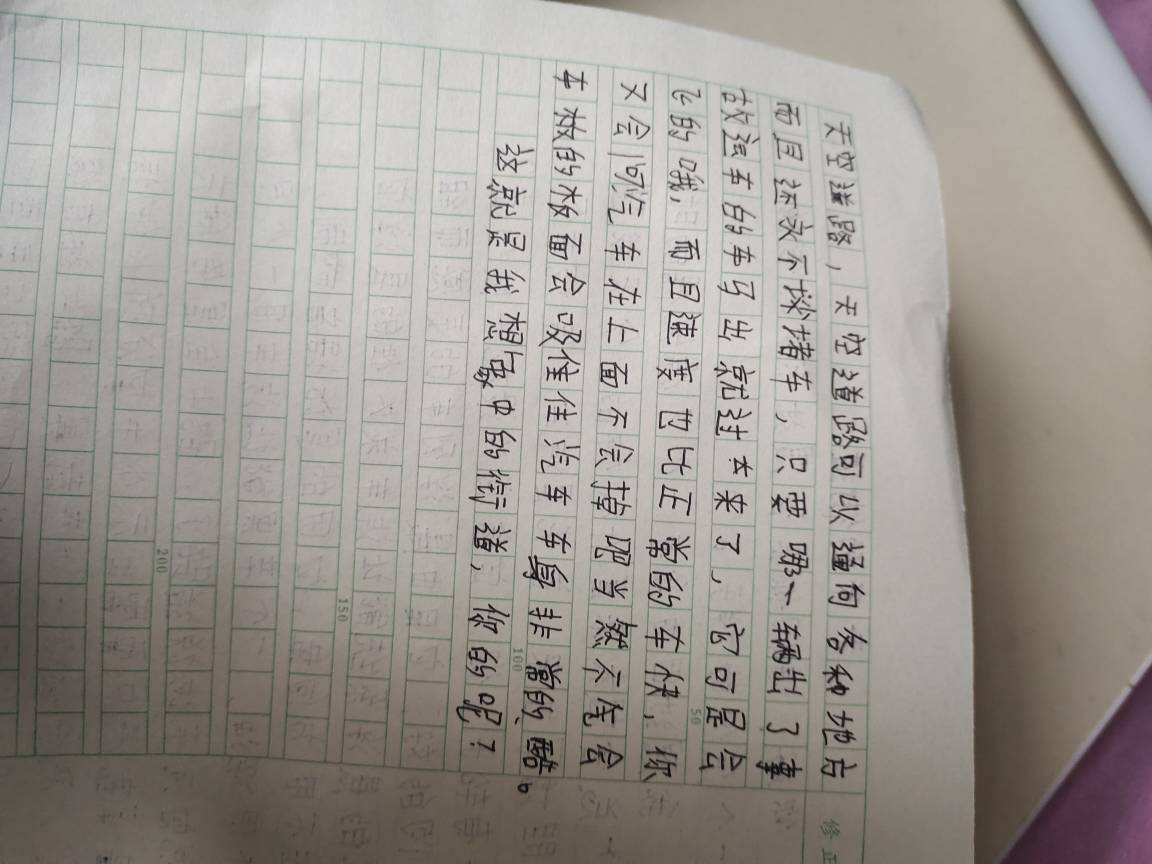 天空道路，天空道路可以通向各种地方
而且还永不堵车，只要哪一辆出了事
故追车的车子出就过去来了，它可是会
飞的哦，而且速度也比正常的车快，你
又会问汽车在上面不会掉吧当然不会
车板的板面会吸住住汽车车身非常的酷。
这就是我想象中的街道，你的呢？
50
100
150
200
修正